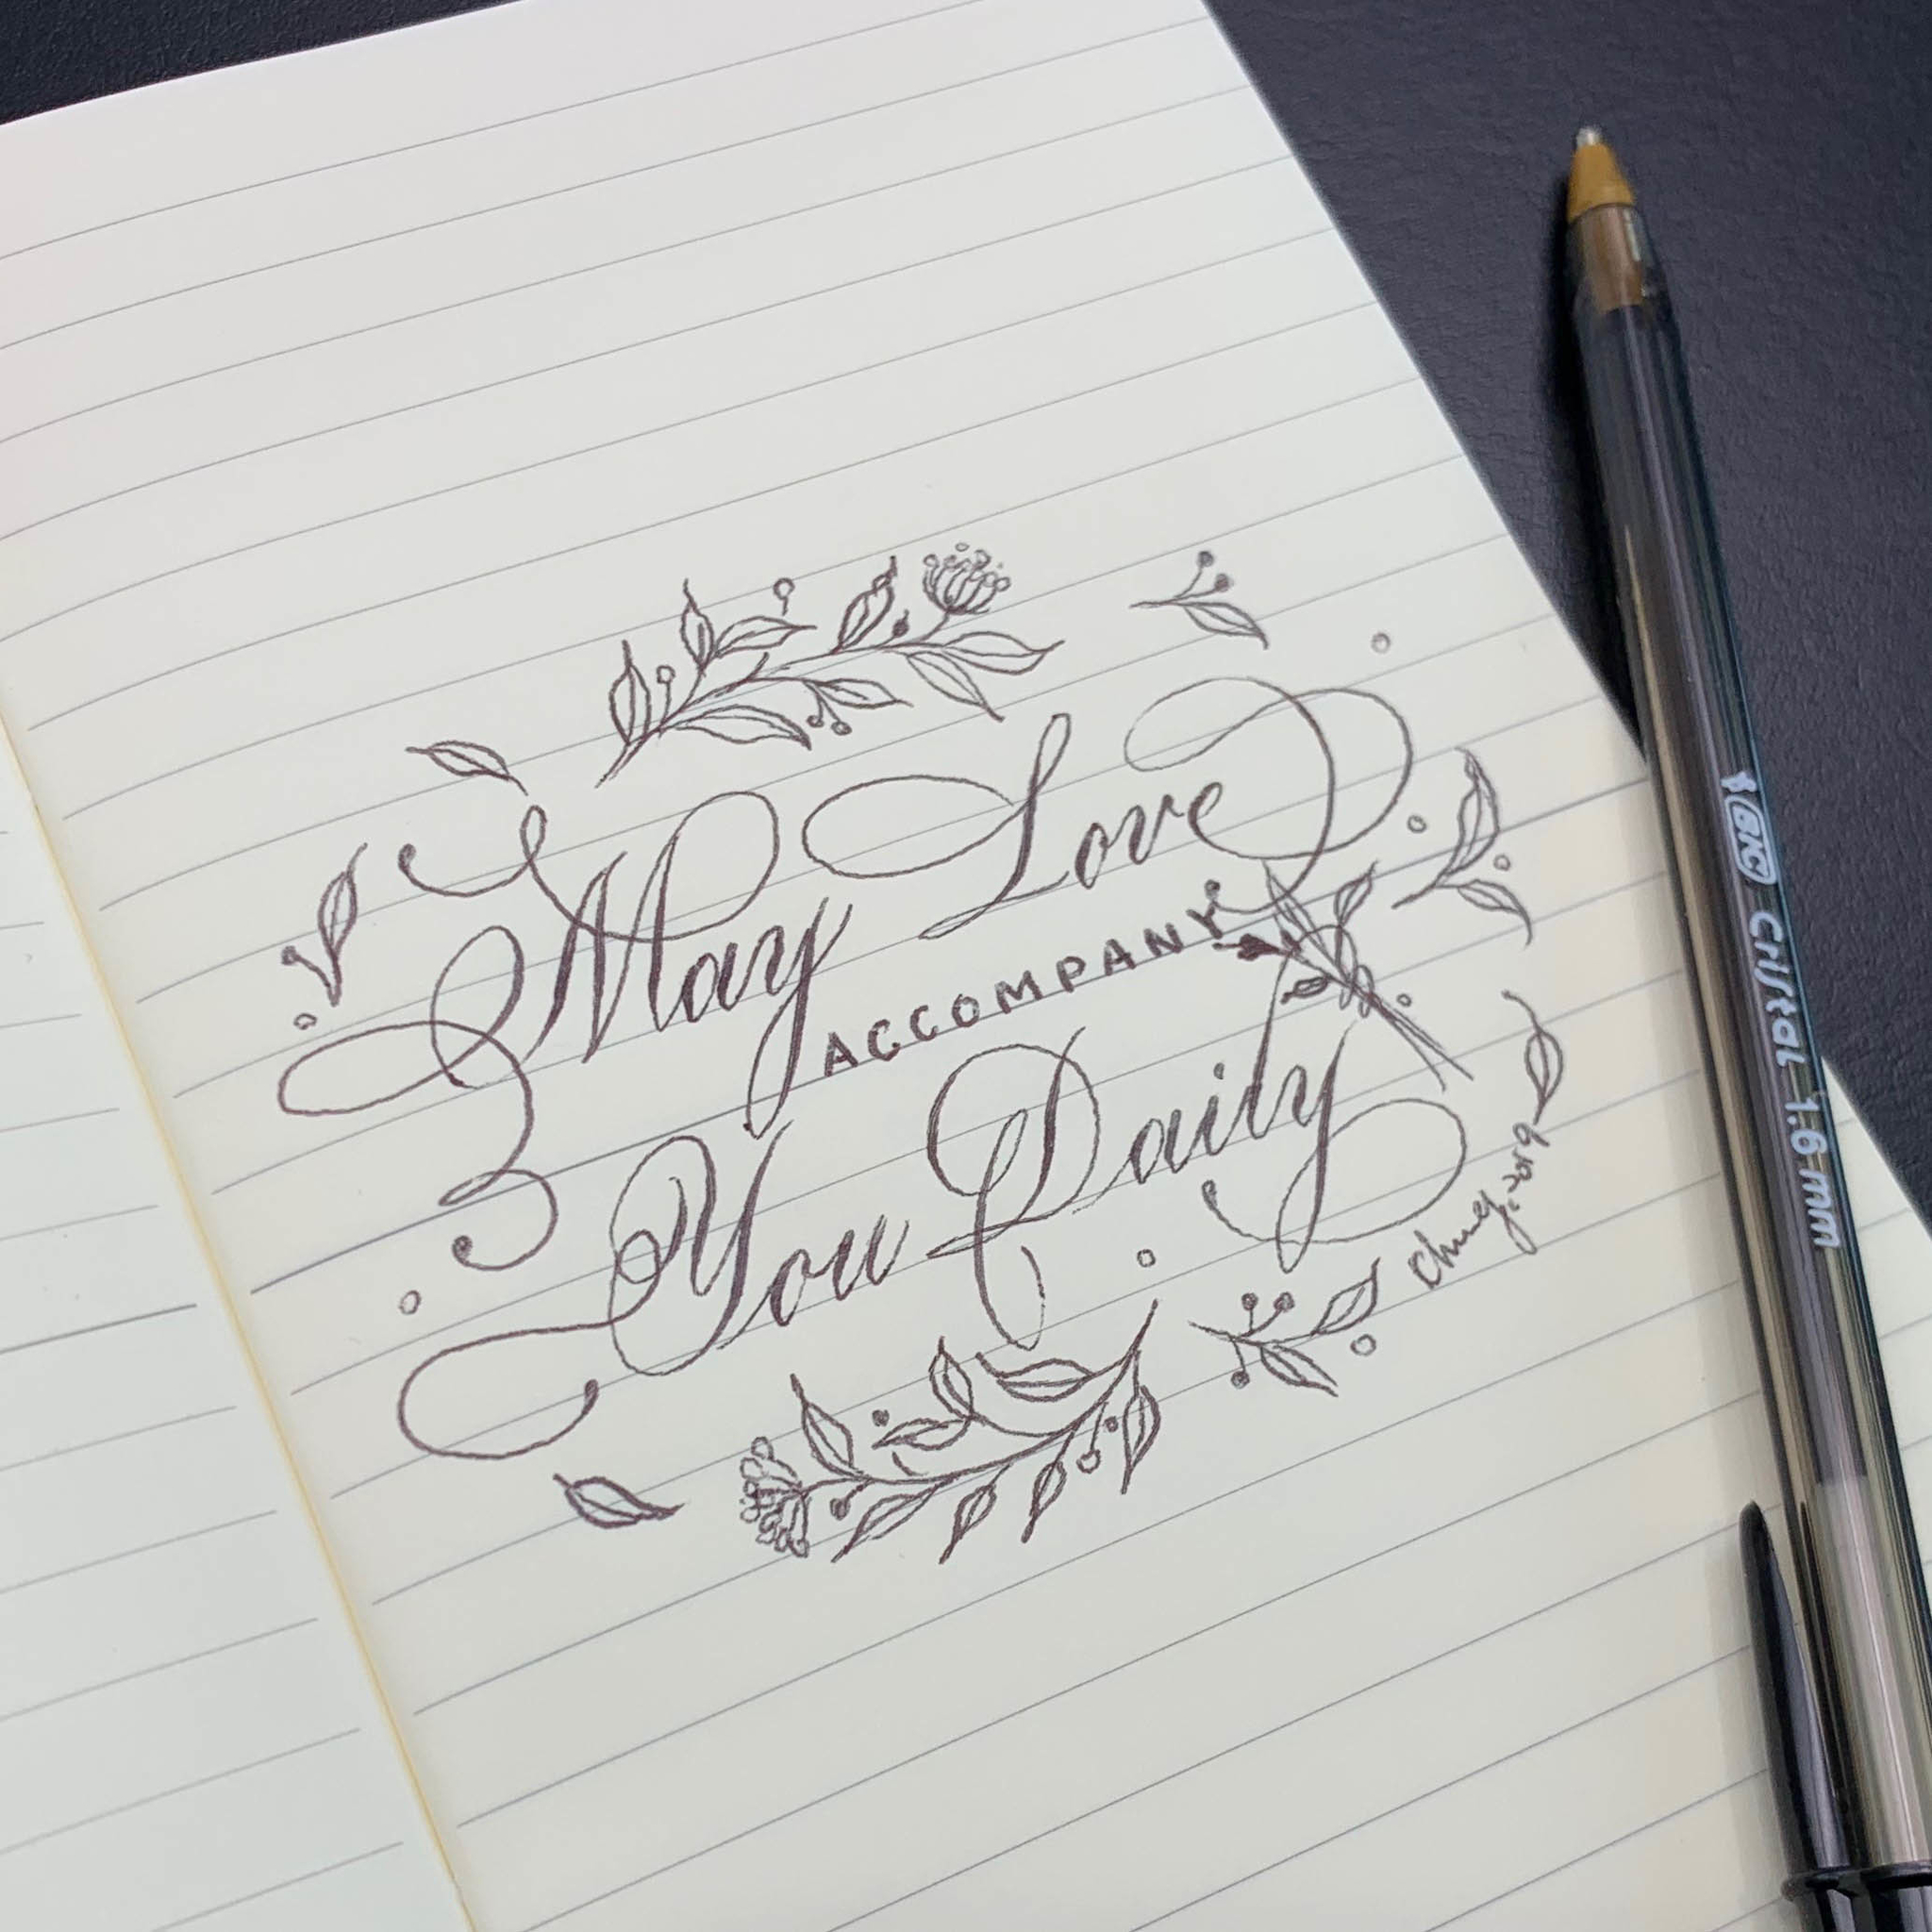 May Love
ACCOMPANY
You Daily
Chung.2019
BIC Cristal 1.6mm